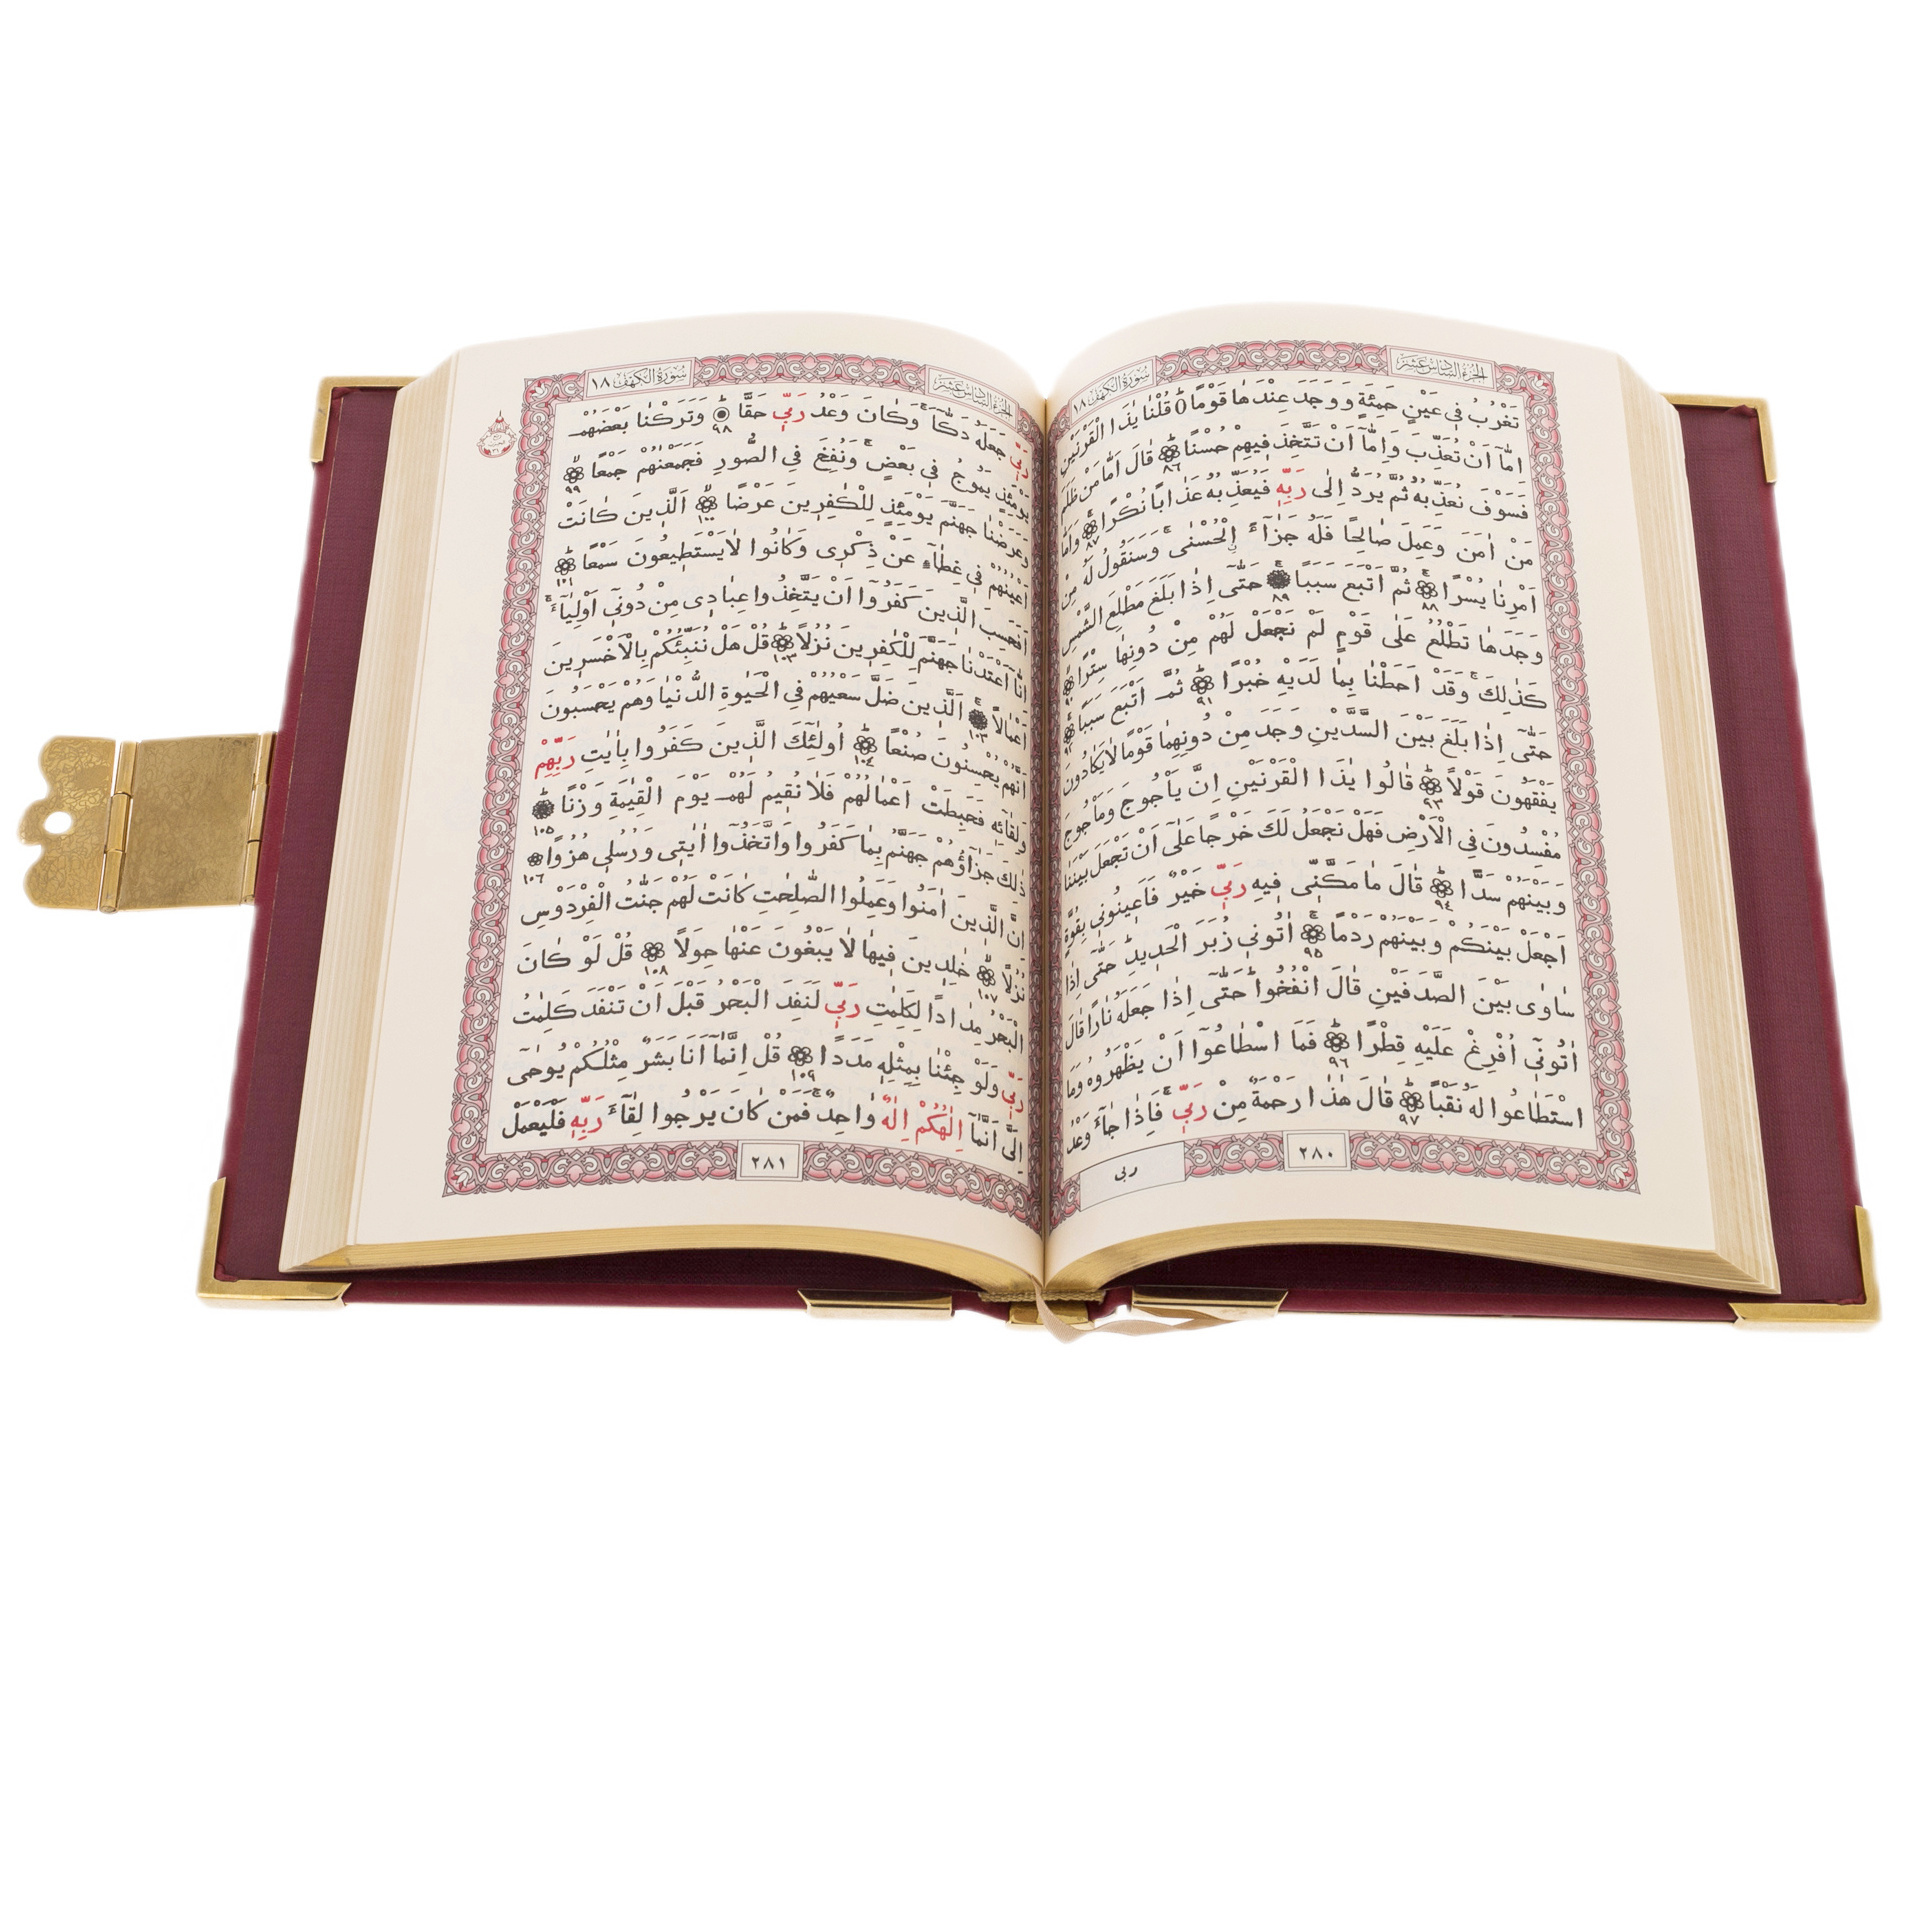 الجزء السادس عشر
سورة الكهف ١٨
تَغْرُبُ فٖي عَيْنٍ حَمِئَةٍ وَ وَجَدَ عِنْدَهٰا قَوْمًا قُلْنٰا يٰذَا الْقَرْنَيْنِ
اِمّٰٓا اَنْ تُعَذِّبَ وَاِمّٰٓا اَنْ تَتَّخِذَ فٖيهِمْ حُسْنًا ٨٦ قٰالَ اَمّٰا مَنْ ظَلَمَ
فَسَوْفَ نُعَذِّبُهُ ثُمَّ يُرَدُّ اِلٰى رَبِّهٖ فَيُعَذِّبُهُ عَذٰابًا نُكْرًا ٨٧ وَاَمّٰا
مَنْ اٰمَنَ وَعَمِلَ صٰالِحًا فَلَهُ جَزٰٓاءً اۨلْحُسْنٰى وَسَنَقُولُ لَهُ مِنْ
اَمْرِنٰا يُسْرًا ٨٨ ثُمَّ اَتْبَعَ سَبَبًا ٨٩ حَتّٰٓى اِذٰا بَلَغَ مَطْلِعَ الشَّمْسِ
وَجَدَهٰا تَطْلُعُ عَلٰى قَوْمٍ لَمْ نَجْعَلْ لَهُمْ مِنْ دُونِهٰا سِتْرًا ٩٠
كَذٰلِكَ وَقَدْ اَحَطْنٰا بِمٰا لَدَيْهِ خُبْرًا ٩١ ثُمَّ اَتْبَعَ سَبَبًا ٩٢
حَتّٰٓى اِذٰا بَلَغَ بَيْنَ السَّدَّيْنِ وَجَدَ مِنْ دُونِهِمٰا قَوْمًا لٰا يَكٰادُونَ
يَفْقَهُونَ قَوْلًا ٩٣ قٰالُوا يٰذَا الْقَرْنَيْنِ اِنَّ يَأْجُوجَ وَمَأْجُوجَ
مُفْسِدُونَ فِي الْاَرْضِ فَهَلْ نَجْعَلُ لَكَ خَرْجًا عَلٰٓى اَنْ تَجْعَلَ بَيْنَنٰا
وَبَيْنَهُمْ سَدًّا ٩٤ قٰالَ مٰا مَكَّنّٖى فٖيهِ رَبّٖي خَيْرٌ فَاَعٖينُونٖي بِقُوَّةٍ
اَجْعَلْ بَيْنَكُمْ وَبَيْنَهُمْ رَدْمًا ٩٥ اٰتُونٖي زُبَرَ الْحَدٖيدِ حَتّٰٓى اِذٰا
سٰاوٰى بَيْنَ الصَّدَفَيْنِ قٰالَ انْفُخُوا حَتّٰٓى اِذٰا جَعَلَهُ نٰارًا قٰالَ
اٰتُونٖٓي اُفْرِغْ عَلَيْهِ قِطْرًا ٩٦ فَمَا اسْطٰاعُوٓا اَنْ يَظْهَرُوهُ وَمَا
اسْتَطٰاعُوا لَهُ نَقْبًا ٩٧ قٰالَ هٰذٰا رَحْمَةٌ مِنْ رَبّٖي فَاِذٰا جٰٓاءَ وَعْدُ
ربى
٢٨٠
الجزء السادس عشر
سورة الكهف ١٨
رَبّٖي جَعَلَهُ دَكّٰٓاءَ وَكٰانَ وَعْدُ رَبّٖي حَقًّا ٩٨ وَتَرَكْنٰا بَعْضَهُمْ
يَوْمَئِذٍ يَمُوجُ فٖي بَعْضٍ وَنُفِخَ فِي الصُّورِ فَجَمَعْنٰاهُمْ جَمْعًا ٩٩
وَعَرَضْنٰا جَهَنَّمَ يَوْمَئِذٍ لِلْكٰفِرٖينَ عَرْضًا ١٠٠ اَلَّذٖينَ كٰانَتْ
اَعْيُنُهُمْ فٖي غِطٰٓاءٍ عَنْ ذِكْرٖى وَكٰانُوا لٰا يَسْتَطٖيعُونَ سَمْعًا ١٠١
اَفَحَسِبَ الَّذٖينَ كَفَرُوٓا اَنْ يَتَّخِذُوا عِبٰادٖى مِنْ دُونٖٓي اَوْلِيٰٓاءَ
اِنّٰٓا اَعْتَدْنٰا جَهَنَّمَ لِلْكٰفِرٖينَ نُزُلًا ١٠٢ قُلْ هَلْ نُنَبِّئُكُمْ بِالْاَخْسَرٖينَ
اَعْمٰالًا ١٠٣ اَلَّذٖينَ ضَلَّ سَعْيُهُمْ فِي الْحَيٰوةِ الدُّنْيٰا وَهُمْ يَحْسَبُونَ
اَنَّهُمْ يُحْسِنُونَ صُنْعًا ١٠٤ اُولٰٓئِكَ الَّذٖينَ كَفَرُوا بِاٰيٰتِ رَبِّهِمْ
وَلِقٰٓائِهٖ فَحَبِطَتْ اَعْمٰالُهُمْ فَلٰا نُقٖيمُ لَهُمْ يَوْمَ الْقِيٰمَةِ وَزْنًا ١٠٥
ذٰلِكَ جَزٰٓاؤُهُمْ جَهَنَّمُ بِمٰا كَفَرُوا وَاتَّخَذُوٓا اٰيٰتٖى وَرُسُلٖى هُزُوًا ١٠٦
اِنَّ الَّذٖينَ اٰمَنُوا وَعَمِلُوا الصّٰلِحٰتِ كٰانَتْ لَهُمْ جَنّٰتُ الْفِرْدَوْسِ
نُزُلًا ١٠٧ خٰلِدٖينَ فٖيهٰا لٰا يَبْغُونَ عَنْهٰا حِوَلًا ١٠٨ قُلْ لَوْ كٰانَ
الْبَحْرُ مِدٰادًا لِكَلِمٰتِ رَبّٖي لَنَفِدَ الْبَحْرُ قَبْلَ اَنْ تَنْفَدَ كَلِمٰتُ
رَبّٖي وَلَوْ جِئْنٰا بِمِثْلِهٖ مَدَدًا ١٠٩ قُلْ اِنَّمٰٓا اَنَا بَشَرٌ مِثْلُكُمْ يُوحٰٓى
اِلَيَّ اَنَّمٰٓا اِلٰهُكُمْ اِلٰهٌ وٰاحِدٌ فَمَنْ كٰانَ يَرْجُوا لِقٰٓاءَ رَبِّهٖ فَلْيَعْمَلْ
٢٨١